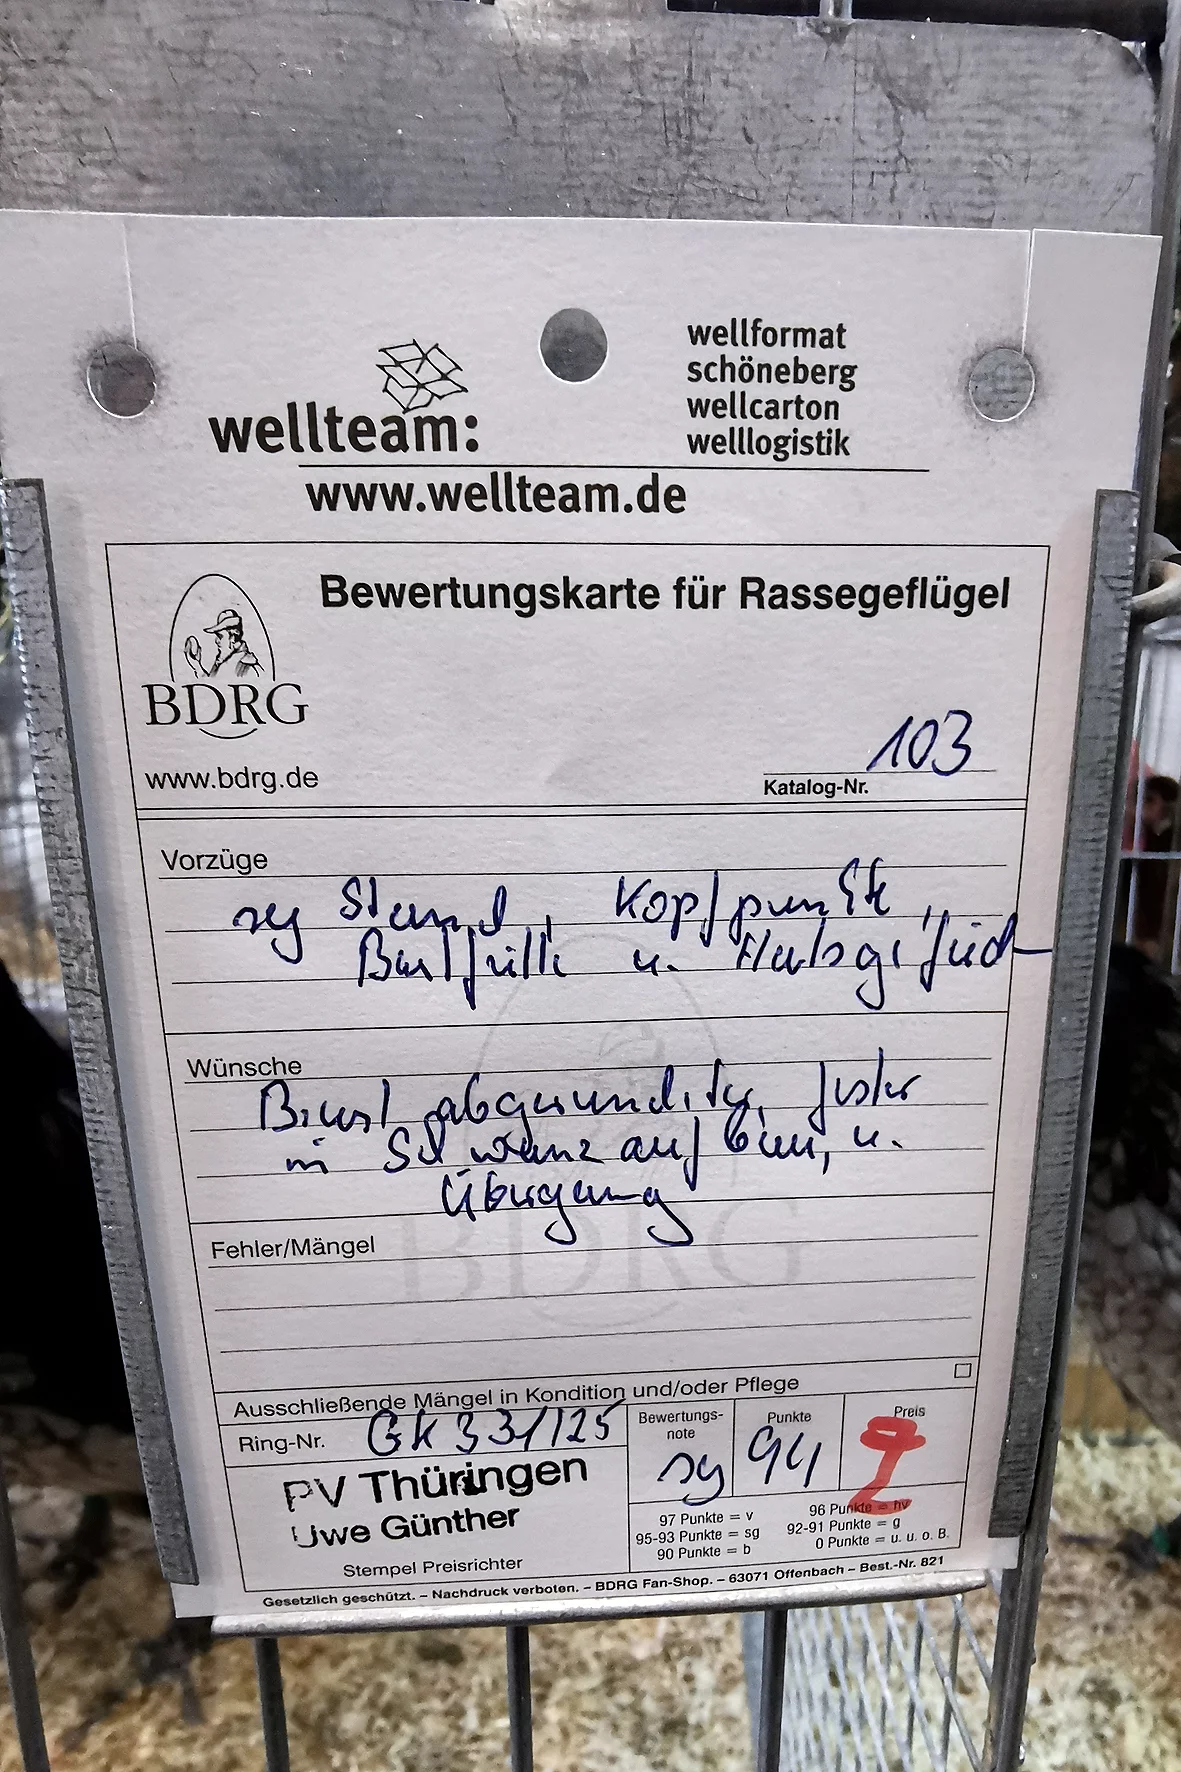 wellteam:
wellformat
schöneberg
wellcarton
welllogistik
www.wellteam.de
Bewertungskarte für Rassegeflügel
BDRG
www.bdrg.de
103
Katalog-Nr.
Vorzüge
sg Stand, Kopfpunkte,
u. Halsgefied
Wünsche
Brust abgerundeter, fester
im Schwanzaufbau, u.
Übergang
BDRG
Fehler/Mängel
Ausschließende Mängel in Kondition und/oder Pflege
Ring-Nr. GK 33/125
Bewertungs-
note
sg
Punkte
94
Preis
PV Thüringen
Uwe Günther
Stempel Preisrichter
97 Punkte = v 96 Punkte = hv
95-93 Punkte = sg 92-91 Punkte = g
90 Punkte = b 0 Punkte = u. u. o. B.
Gesetzlich geschützt. – Nachdruck verboten. – BDRG Fan-Shop. – 63071 Offenbach – Best.-Nr. 821